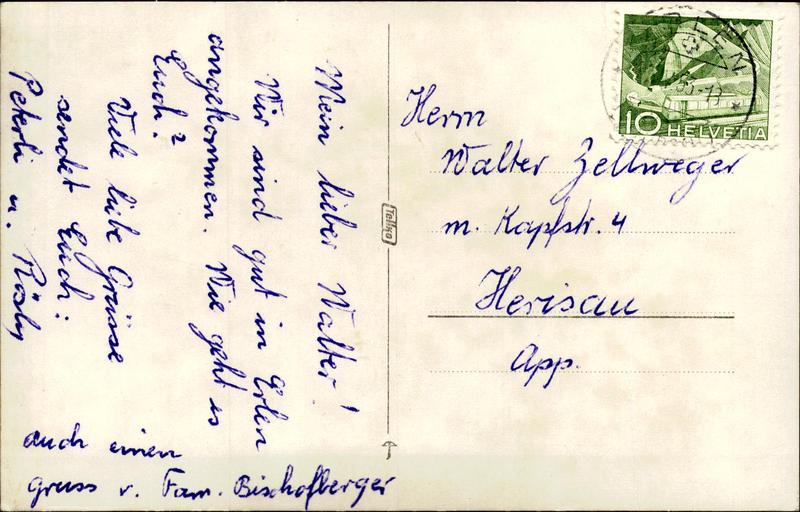 Mein lieber Walter!
Wir sind gut in Erlen
angekommen. Wie geht es
Euch?
Viele liebe Grüsse
sendet Euch:
Peterli u. Rösly
auch einen
gruss v. Fam. Bischofberger
Telka
Herrn
Walter Zellweger
m. Kapfstr. 4
Herisau
App.
RLEN
10 HELVETIA